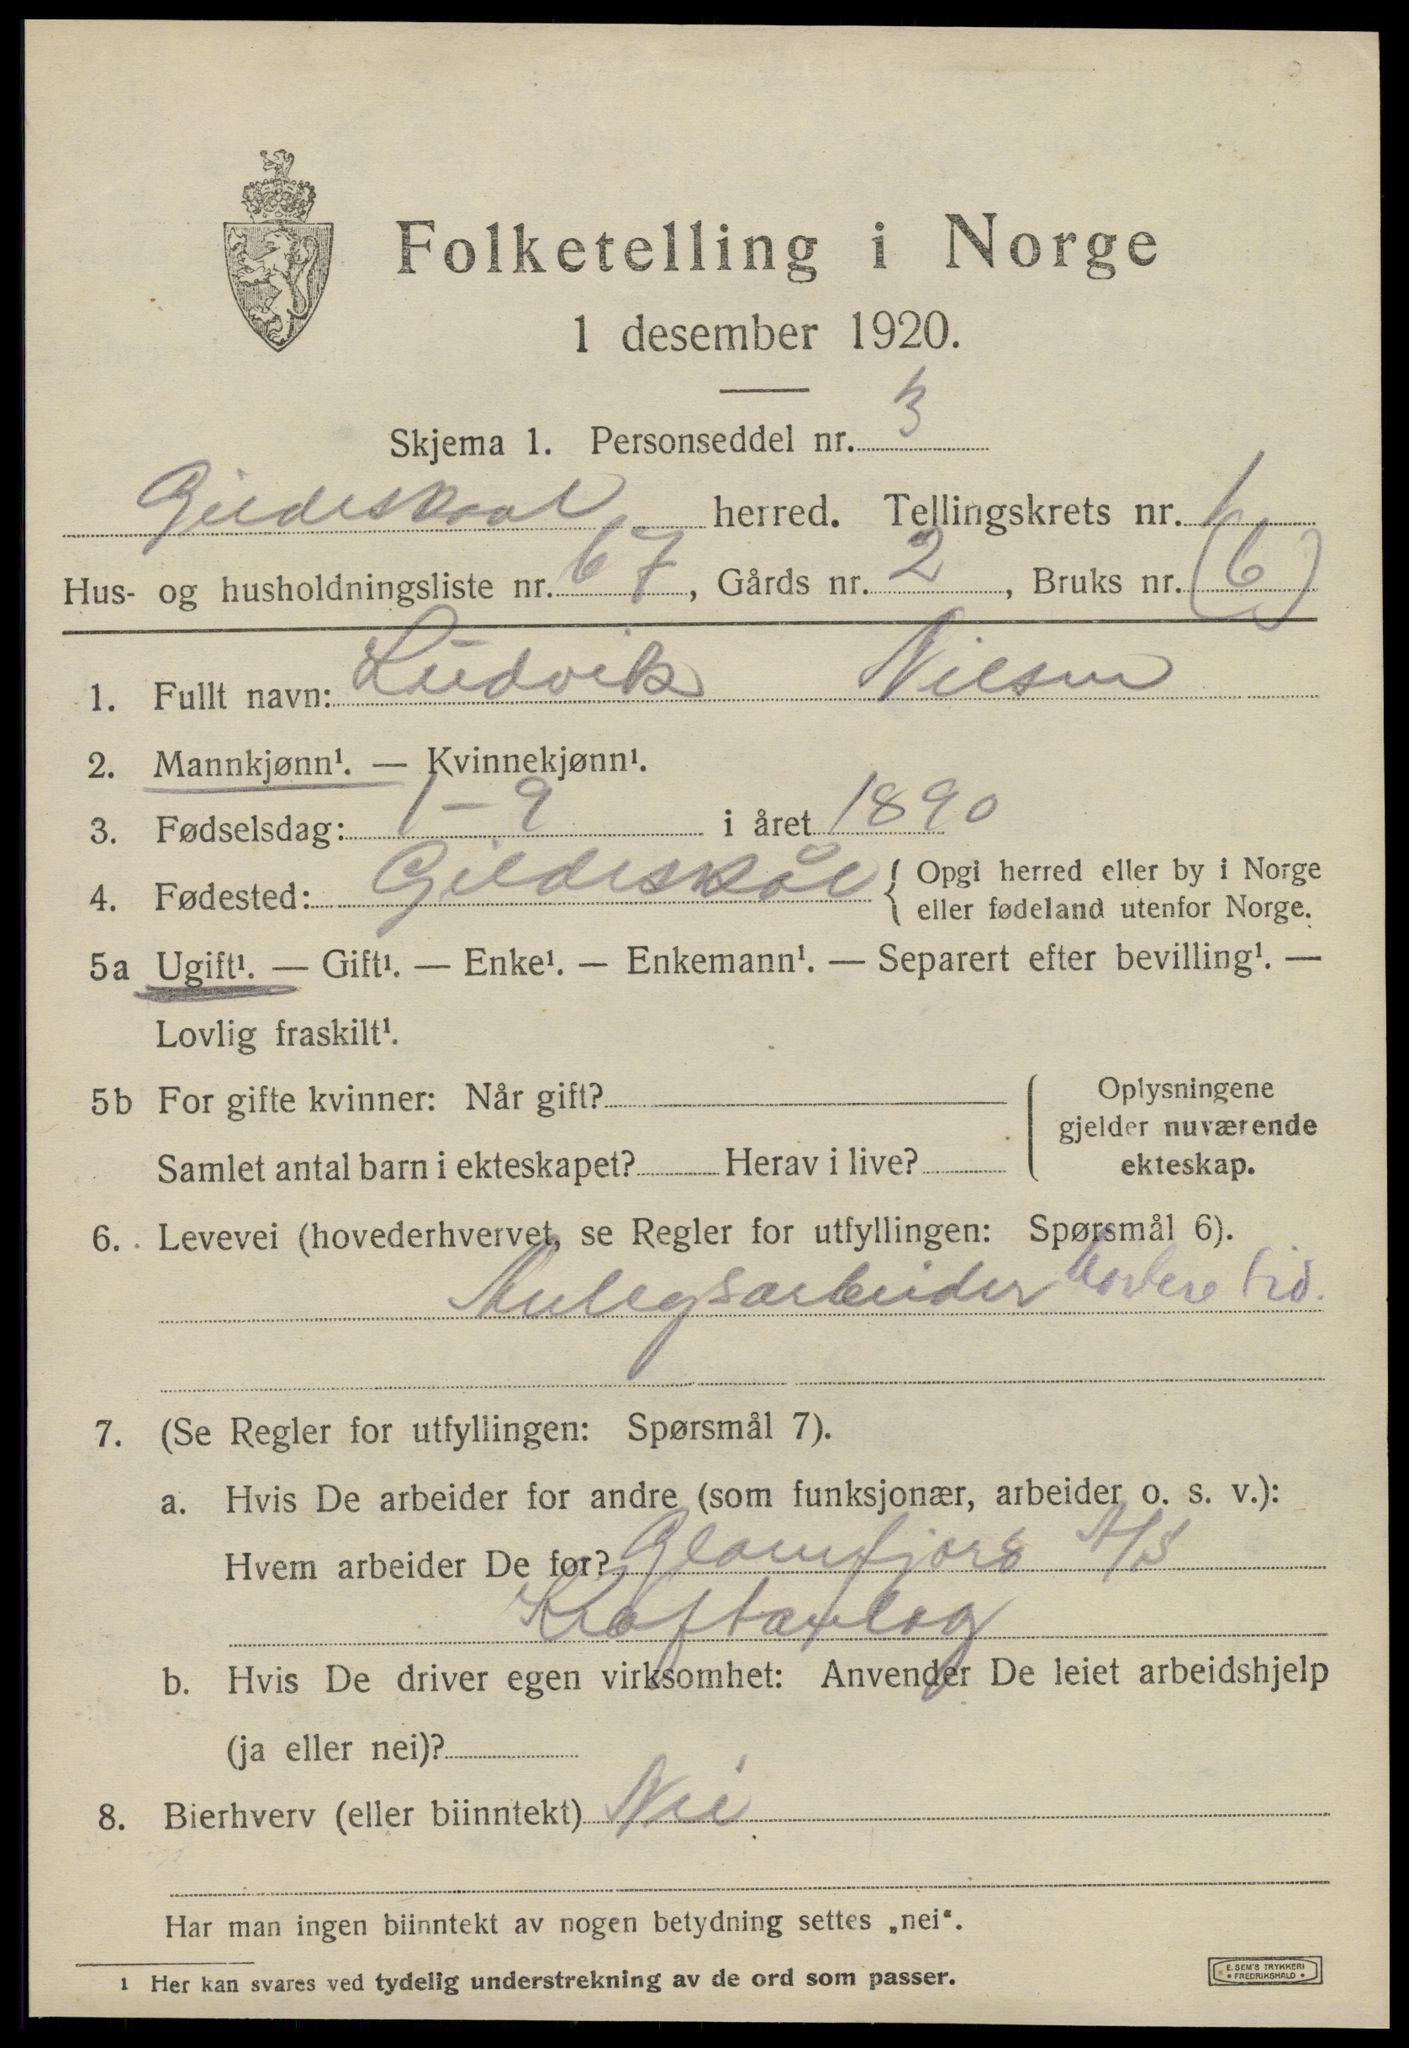 Folketelling i Norge
1 desember 1920.
Skjema 1. Personseddel nr. 3
Gildeskaal herred. Tellingskrets nr. 1
Hus- og husholdningsliste nr. 67, Gårds nr. 2, Bruks nr. (6)
1. Fullt navn: Ludvik Nilsen
2. Mannkjønn¹. — Kvinnekjønn¹.
3. Fødselsdag: 1-9 i året 1890
4. Fødested: Gildeskål { Opgi herred eller by i Norge
eller fødeland utenfor Norge.
5a Ugift¹. — Gift¹. — Enke¹. — Enkemann¹. — Separert efter bevilling¹. —
Lovlig fraskilt¹.
5b For gifte kvinner: Når gift?
Samlet antal barn i ekteskapet? Herav i live?
Oplysningene
gjelder nuværende
ekteskap.
6. Levevei (hovederhvervet, se Regler for utfyllingen: Spørsmål 6).
Anlegsarbeider kortere tid.
7. (Se Regler for utfyllingen: Spørsmål 7).
a. Hvis De arbeider for andre (som funksjonær, arbeider o. s. v.):
Hvem arbeider De for? Glomfjord A/S
Kraftanlæg
b. Hvis De driver egen virksomhet: Anvender De leiet arbeidshjelp
(ja eller nei)?
8. Bierhverv (eller biinntekt) Nei
Har man ingen biinntekt av nogen betydning settes „nei“.
1 Her kan svares ved tydelig understrekning av de ord som passer.
E. SEM'S TRYKKERI
FREDRIKSHALD